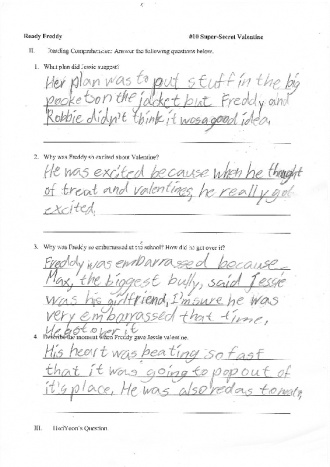 Ready Freddy #10 Super-Secret Valentine
II. Reading Comprehension: Answer the following questions below.
1. What plan did Jessie suggest?
Her plan was to put stuff in the big
pockets on the jacket but Freddy and
Robbie didn't think it was a good idea.
2. Why was Freddy so excited about Valentine?
He was excited because when he thought
of treat and valentines, he really got
excited.
3. Why was Freddy so embarrassed at the school? How did he get over it?
Freddy was embarrassed because
Max, the biggest bully, said Jessie
was his girlfriend, I'm sure he was
very embarrassed that time,
He got over it
4. Describe the moment when Freddy gave Jessie valentine.
His heart was beating so fast
that it was going to pop out of
it's place. He was also red as tomato,
III. Question